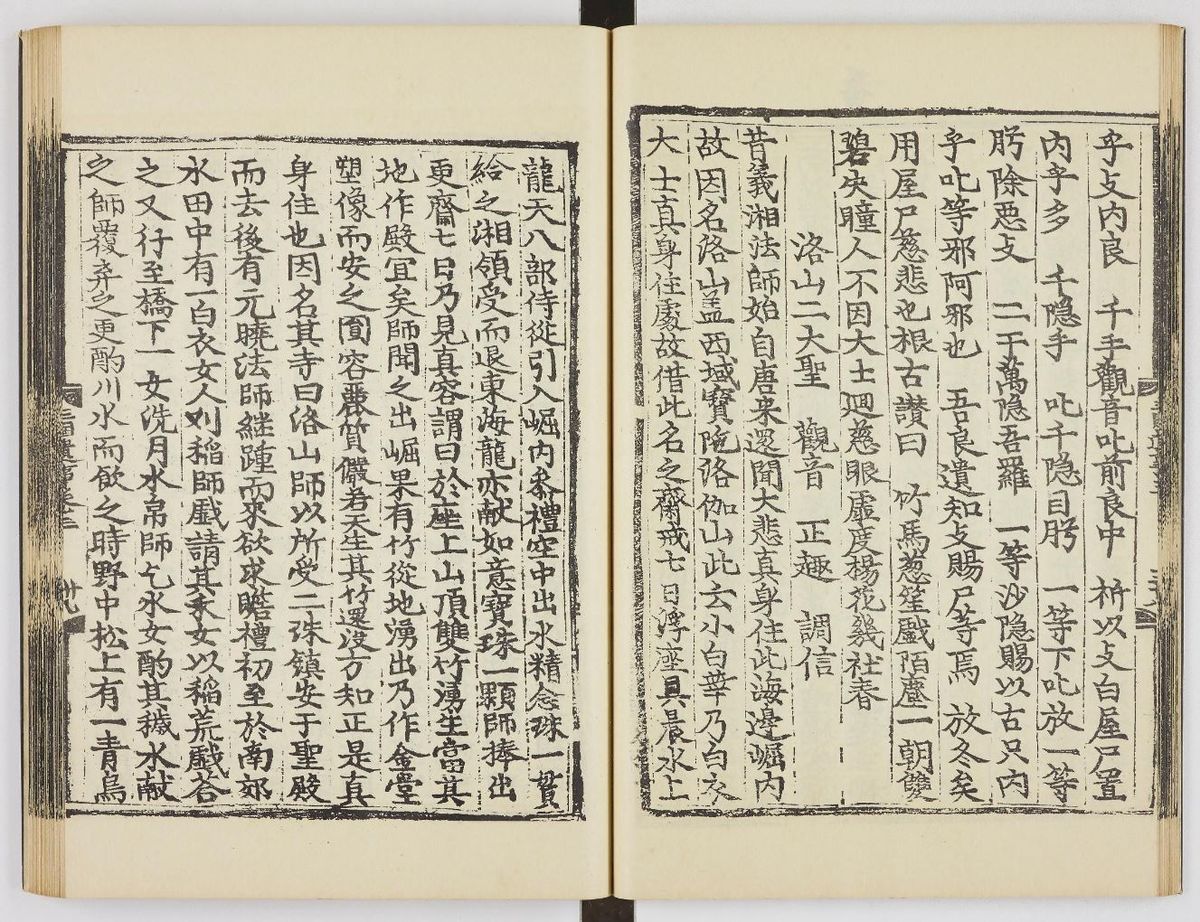 乎攴內良　千手觀音叱前良中　祈以攴白屋尸置
內乎多　千隱手　叱千隱目肹　一等下叱放一等
肹除惡攴　二于萬隱吾羅　一等沙隱賜以古只內
乎叱等邪阿邪也　吾良遺知攴賜尸等焉　放冬矣
用屋尸慈悲也根古讃曰　竹馬葱笙戲陌塵一朝雙
碧失瞳人不因大士迴慈眼虛度楊花幾社春
洛山二大聖　觀音　正趣　調信
昔義湘法師始自唐来還聞大悲真身住此海邊崛内
故因名洛山盖西域寶陁洛伽山此云小白華乃白衣
大士真身住處故借此名之齋戒七日浮座具晨水上
龍天八部侍從引入崛內叅禮空中出水精念珠一貫
給之湘領受而退東海龍亦献如意寶珠一顆師捧出
更齋七日乃見真容謂曰於座上山頂雙竹湧生當其
地作殿宜矣師聞之出崛果有竹從地湧出乃作金堂
塑像而安之圓容麗質儼若天生其竹還沒方知正是真
身住也因名其寺曰洛山師以所受二珠鎮安于聖殿
而去後有元曉法師継踵而來欲求瞻禮初至於南郊
水田中有一白衣女人刈稲師戲請其禾女以稲荒戲荅
之又行至橋下一女洗月水帛師乞水女酌其穢水献
之師覆弃之更酌川水而飲之時野中松上有一青鳥
三國遺事卷三　卄九